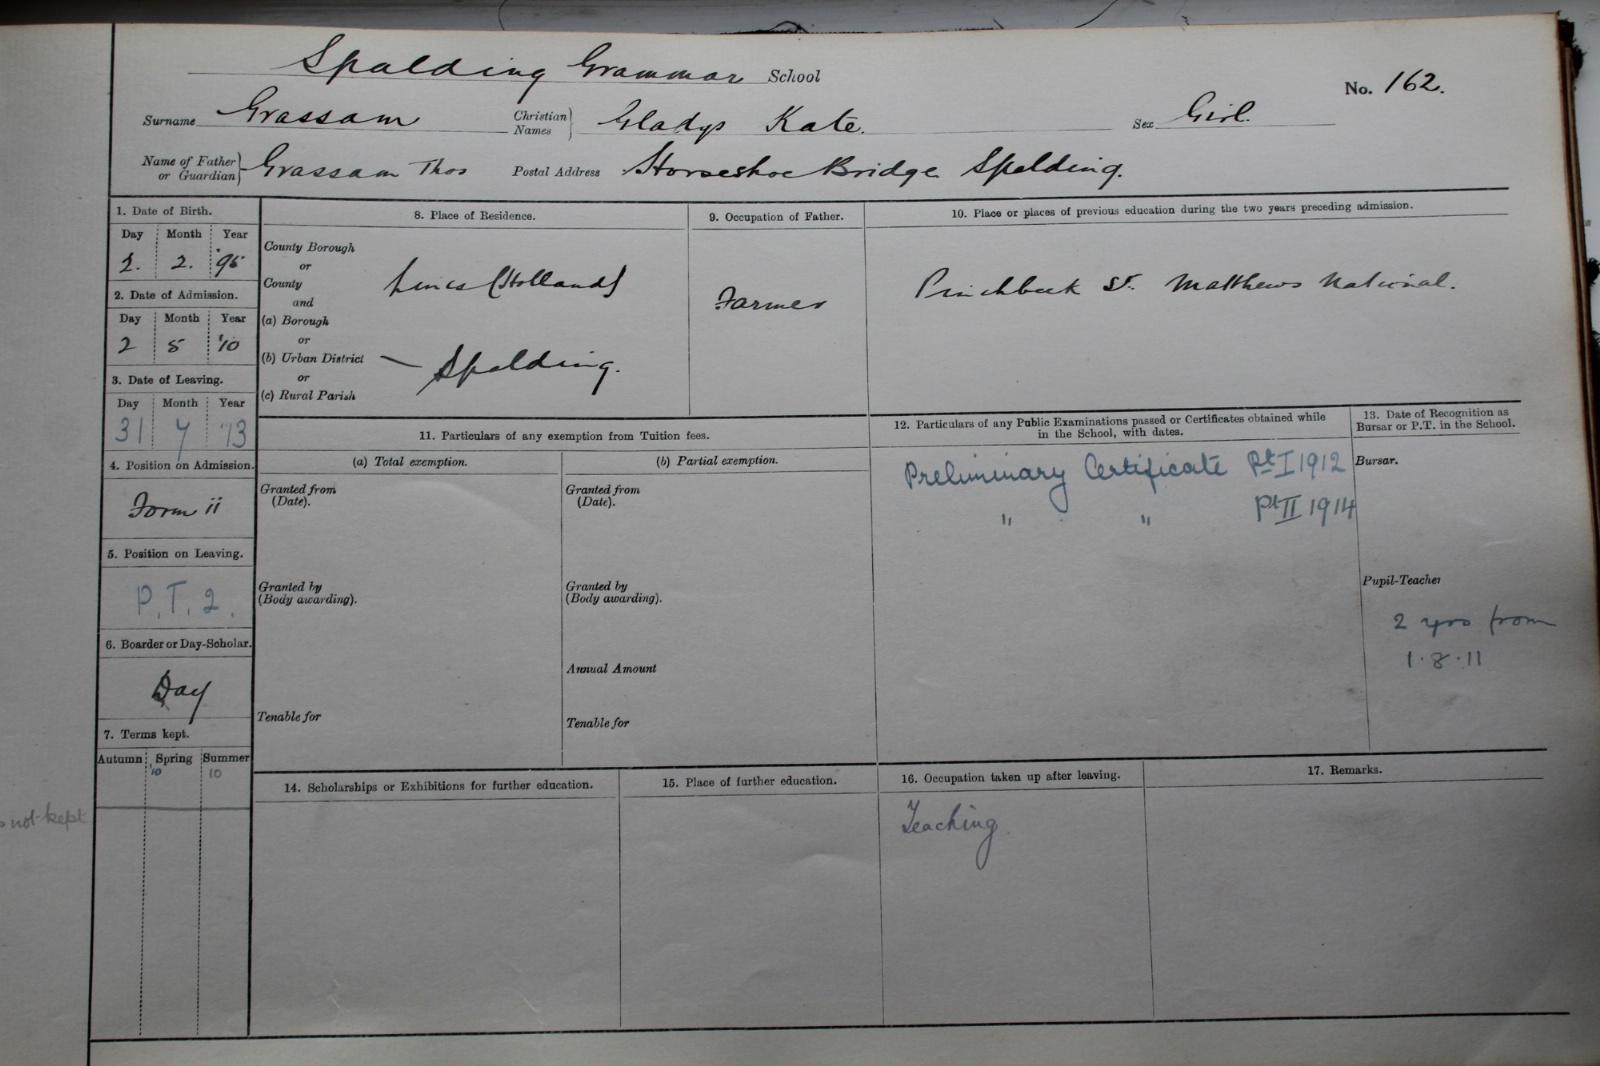 Spalding Grammar School
No. 162.
Surname Grassam Christian Names Gladys Kate. Sex Girl.
Name of Father or Guardian Grassam Thos Postal Address Horseshoe Bridge Spalding.
1. Date of Birth.
Day Month Year
2. 2. '95
2. Date of Admission.
Day Month Year
2 5 '10
3. Date of Leaving.
Day Month Year
31 7 '13
4. Position on Admission.
Form ii
5. Position on Leaving.
P.T. 2.
6. Boarder or Day-Scholar.
Day
7. Terms kept.
Autumn Spring Summer
'10 10
not kept
8. Place of Residence.
County Borough
or
County
and
Lincs (Holland)
(a) Borough
or
(b) Urban District — Spalding.
or
(c) Rural Parish
9. Occupation of Father.
Farmer
10. Place or places of previous education during the two years preceding admission.
Pinchbeck St. Matthews National.
11. Particulars of any exemption from Tuition fees.
(a) Total exemption.
Granted from
(Date).
Granted by
(Body awarding).
Tenable for
(b) Partial exemption.
Granted from
(Date).
Granted by
(Body awarding).
Annual Amount
Tenable for
12. Particulars of any Public Examinations passed or Certificates obtained while
in the School, with dates.
Preliminary Certificate Pt I 1912
" " Pt II 1914
13. Date of Recognition as
Bursar or P.T. in the School.
Bursar.
Pupil-Teacher
2 yrs from
1.8.11
14. Scholarships or Exhibitions for further education.
15. Place of further education.
16. Occupation taken up after leaving.
Teaching
17. Remarks.